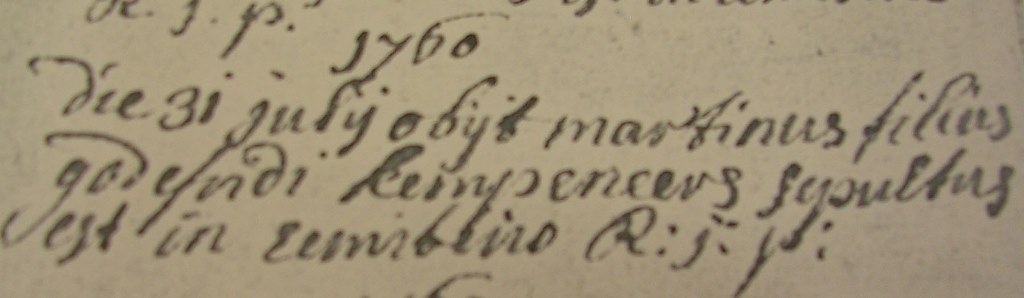 R. j. p.
1760
die 31 julij obijt martinus filius
godefridi kempeneers sepultus
est in cemiterio R: j: p: